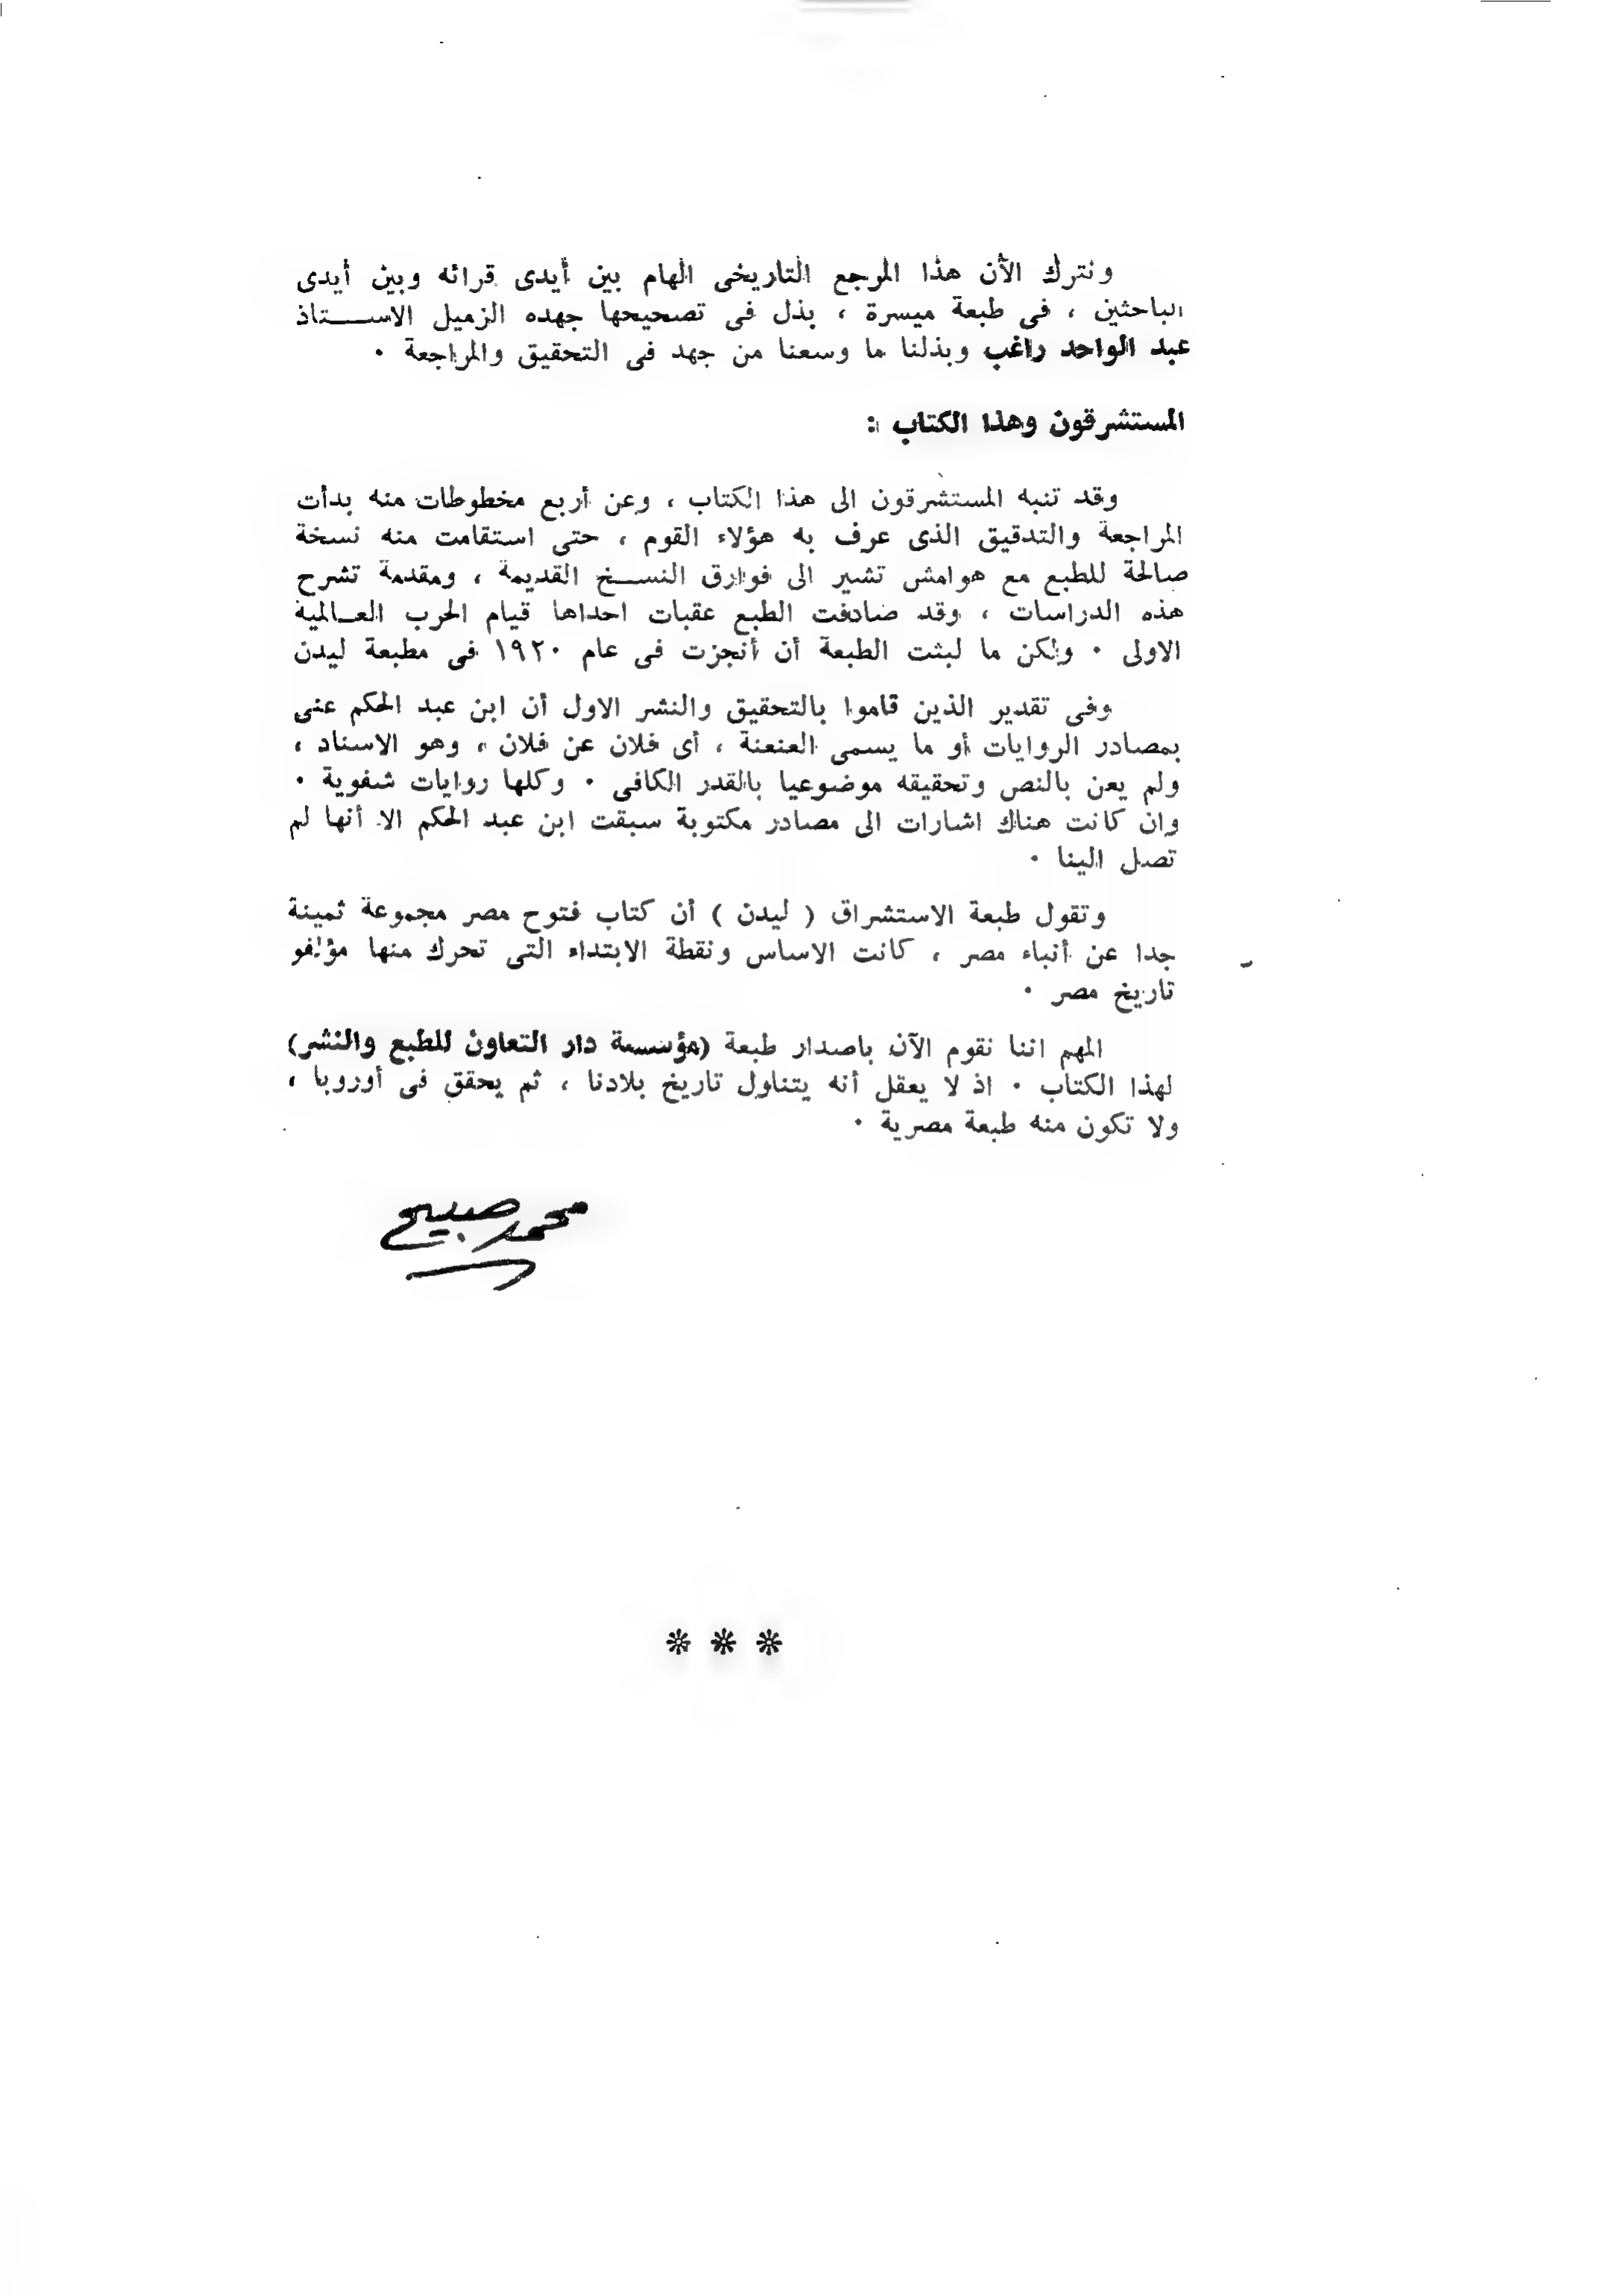 ونترك الآن هذا المرجع التاريخى الهام بين أيدى قرائه وبين أيدى
الباحثين ، فى طبعة ميسرة ، بذل فى تصحيحها جهده الزميل الاستاذ
عبد الواحد راغب وبذلنا ما وسعنا من جهد فى التحقيق والمراجعة ٠
المستشرقون وهذا الكتاب :
وقد تنبه المستشرقون الى هذا الكتاب ، وعن أربع مخطوطات منه بدأت
المراجعة والتدقيق الذى عرف به هؤلاء القوم ، حتى استقامت منه نسخة
صالحة للطبع مع هوامش تشير الى فوارق النسخ القديمة ، ومقدمة تشرح
هذه الدراسات ، وقد صادفت الطبع عقبات احداها قيام الحرب العالمية
الاولى ٠ ولكن ما لبثت الطبعة أن أنجزت فى عام ١٩٢٠ فى مطبعة ليدن
وفى تقدير الذين قاموا بالتحقيق والنشر الاول أن ابن عبد الحكم عنى
بمصادر الروايات أو ما يسمى العنعنة ، أى فلان عن فلان ، وهو الاسناد ،
ولم يعن بالنص وتحقيقه موضوعيا بالقدر الكافى ٠ وكلها روايات شفوية ٠
وان كانت هناك اشارات الى مصادر مكتوبة سبقت ابن عبد الحكم الا أنها لم
تصل الينا ٠
وتقول طبعة الاستشراق ( ليدن ) أن كتاب فتوح مصر مجموعة ثمينة
جدا عن أنباء مصر ، كانت الاساس ونقطة الابتداء التى تحرك منها مؤلفو
تاريخ مصر ٠
المهم اننا نقوم الآن باصدار طبعة (مؤسسة دار التعاون للطبع والنشر)
لهذا الكتاب ٠ اذ لا يعقل أنه يتناول تاريخ بلادنا ، ثم يحقق فى أوروبا ،
ولا تكون منه طبعة مصرية ٠
محمد صبيح
❊ ❊ ❊